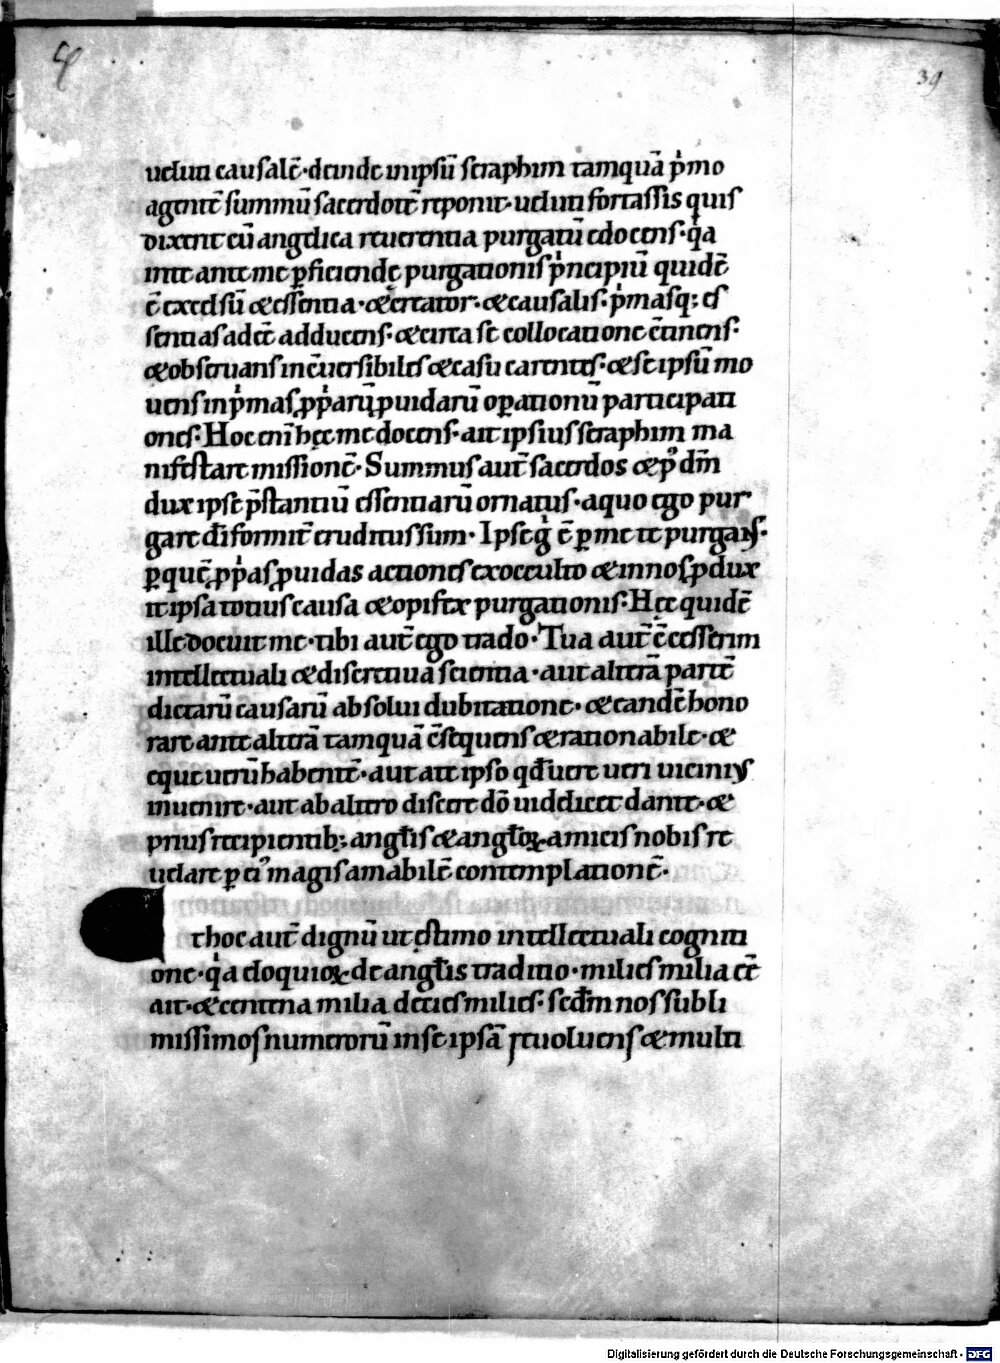 39
uelun causalē· deinde inipsū seraphim tamquā pͥmo
agentē summū sacerdotē reponit· uelun fortassis quis
dixerit cū angelica reuerentia purgatiū edocens· qͥa
inte ante me ꝑficiende purgationis pͥncipiū quidē
ē excelsū & essentia· & creator· & causalis· pͥmasq; es
sentias ad eē adducens· & circa se collocatione ctinens·
& obseruans incuersibiles & casu carentes· & seipsū mo
uens inpͥmas ꝓpͥarū ꝓuidarū oꝑationū participati
ones· Hoc eni hęc me docens· ait ipsius seraphim ma
nifestare missionē· Summus aut sacerdos & pꝰ dm̄
dux ipse pstantiū essentiarū ornatus· aquo ego pur
gare diformit eruditus sum· Ipse gͥ ē ꝑ me te purgans·
ꝑ quē ꝓpͥas ꝓuidas actiones exocculto & innos ꝓdux
it ipsa totius causa & opifex purgationis· Hęc quidē
ille docuit me· tibi aut ego trado· Tua aut ē cesserim
intellectuali & discretiua scientia· aut alterā partē
dictarū causarū absolui dubitatione· & eandē hono
rare ante alterā tamquā csequens & rationabile· &
eque uerū habentē· aut at ipso qd uere ueri uicinius
inuenire· aut ab altero discere do uidelicet dante· &
prius recipientib; anglis & anglox amicis nobis re
uelare ꝑ ci magis amabilē contemplationē·
t hoc aut dignū ut ęstimo intellectuali cogniti
one· qͥa eloquiox de anglis traditio· milies milia eē
ait· & centena milia decies milies· scdm nos subli
missimos numerorū inse ipsā reuoluens & multi
Digitalisierung gefördert durch die Deutsche Forschungsgemeinschaft - DFG